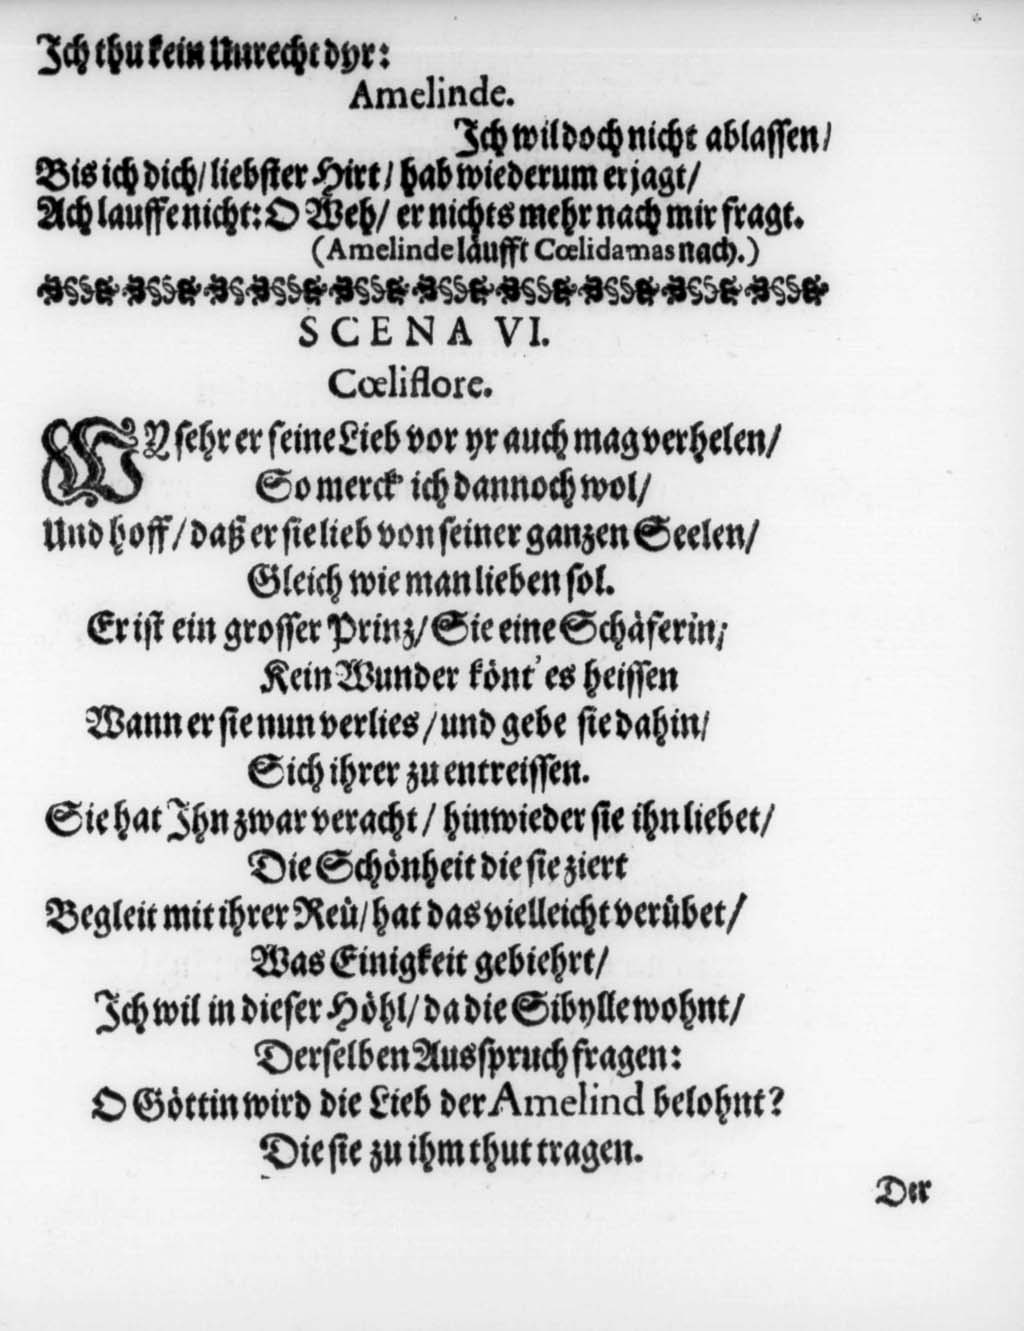 Ich thu kein Unrecht dyr:
Amelinde.
Ich wil doch nicht ablassen/
Bis ich dich/ liebster Hirt/ hab wiederum erjagt/
Ach lauffe nicht: O Weh/ er nichts mehr nach mir fragt.
(Amelinde läufft Cœlidamas nach.)
SCENA VI.
Cœliflore.
WY sehr er seine Lieb vor yr auch mag verhelen/
So merck' ich dannoch wol/
Und hoff/ daß er sie lieb von seiner ganzen Seelen/
Gleich wie man lieben sol.
Er ist ein grosser Prinz/ Sie eine Schäferin;
Kein Wunder könt' es heissen
Wann er sie nun verlies/ und gebe sie dahin/
Sich ihrer zu entreissen.
Sie hat Ihn zwar veracht/ hinwieder sie ihn liebet/
Die Schönheit die sie ziert
Begleit mit ihrer Reü/ hat das vielleicht verübet/
Was Einigkeit gebiehrt/
Ich wil in dieser Höhl/ da die Sibylle wohnt/
Derselben Ausspruch fragen:
O Göttin wird die Lieb der Amelind belohnt?
Die sie zu ihm thut tragen.
Der